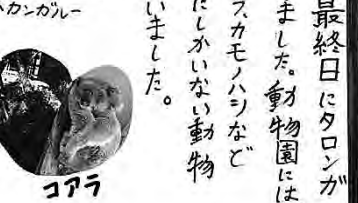 最終日にタロンガ
ました。動物園には
ラ、カモノハシなど
にしかいない動物
いました。
カンガルー
コアラ